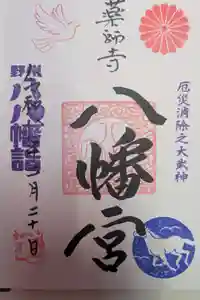 薬師寺
厄災消除之大武神
八幡宮
野州
八幡詣
月二十日